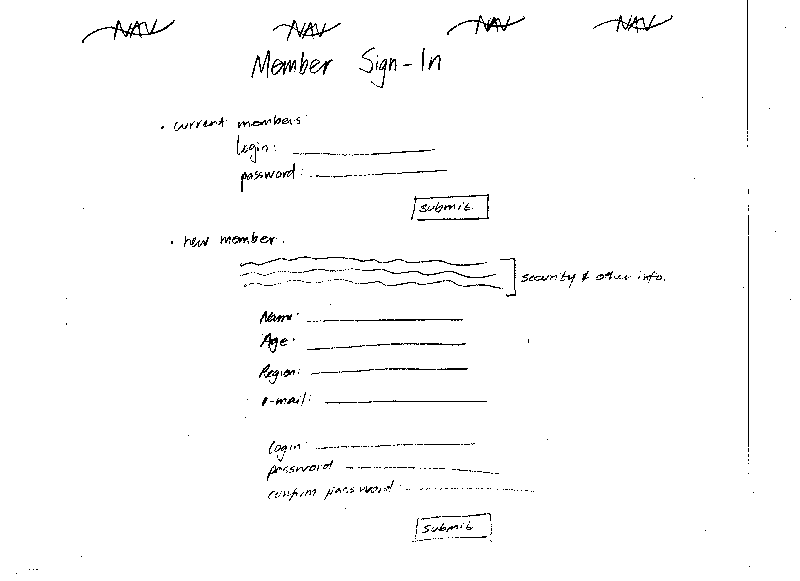 NAV NAV NAV NAV
Member Sign-In
• current members:
login:
password:
submit
• new member.
security & other info.
Name:
Age:
Region:
e-mail:
login:
password
confirm password
submit